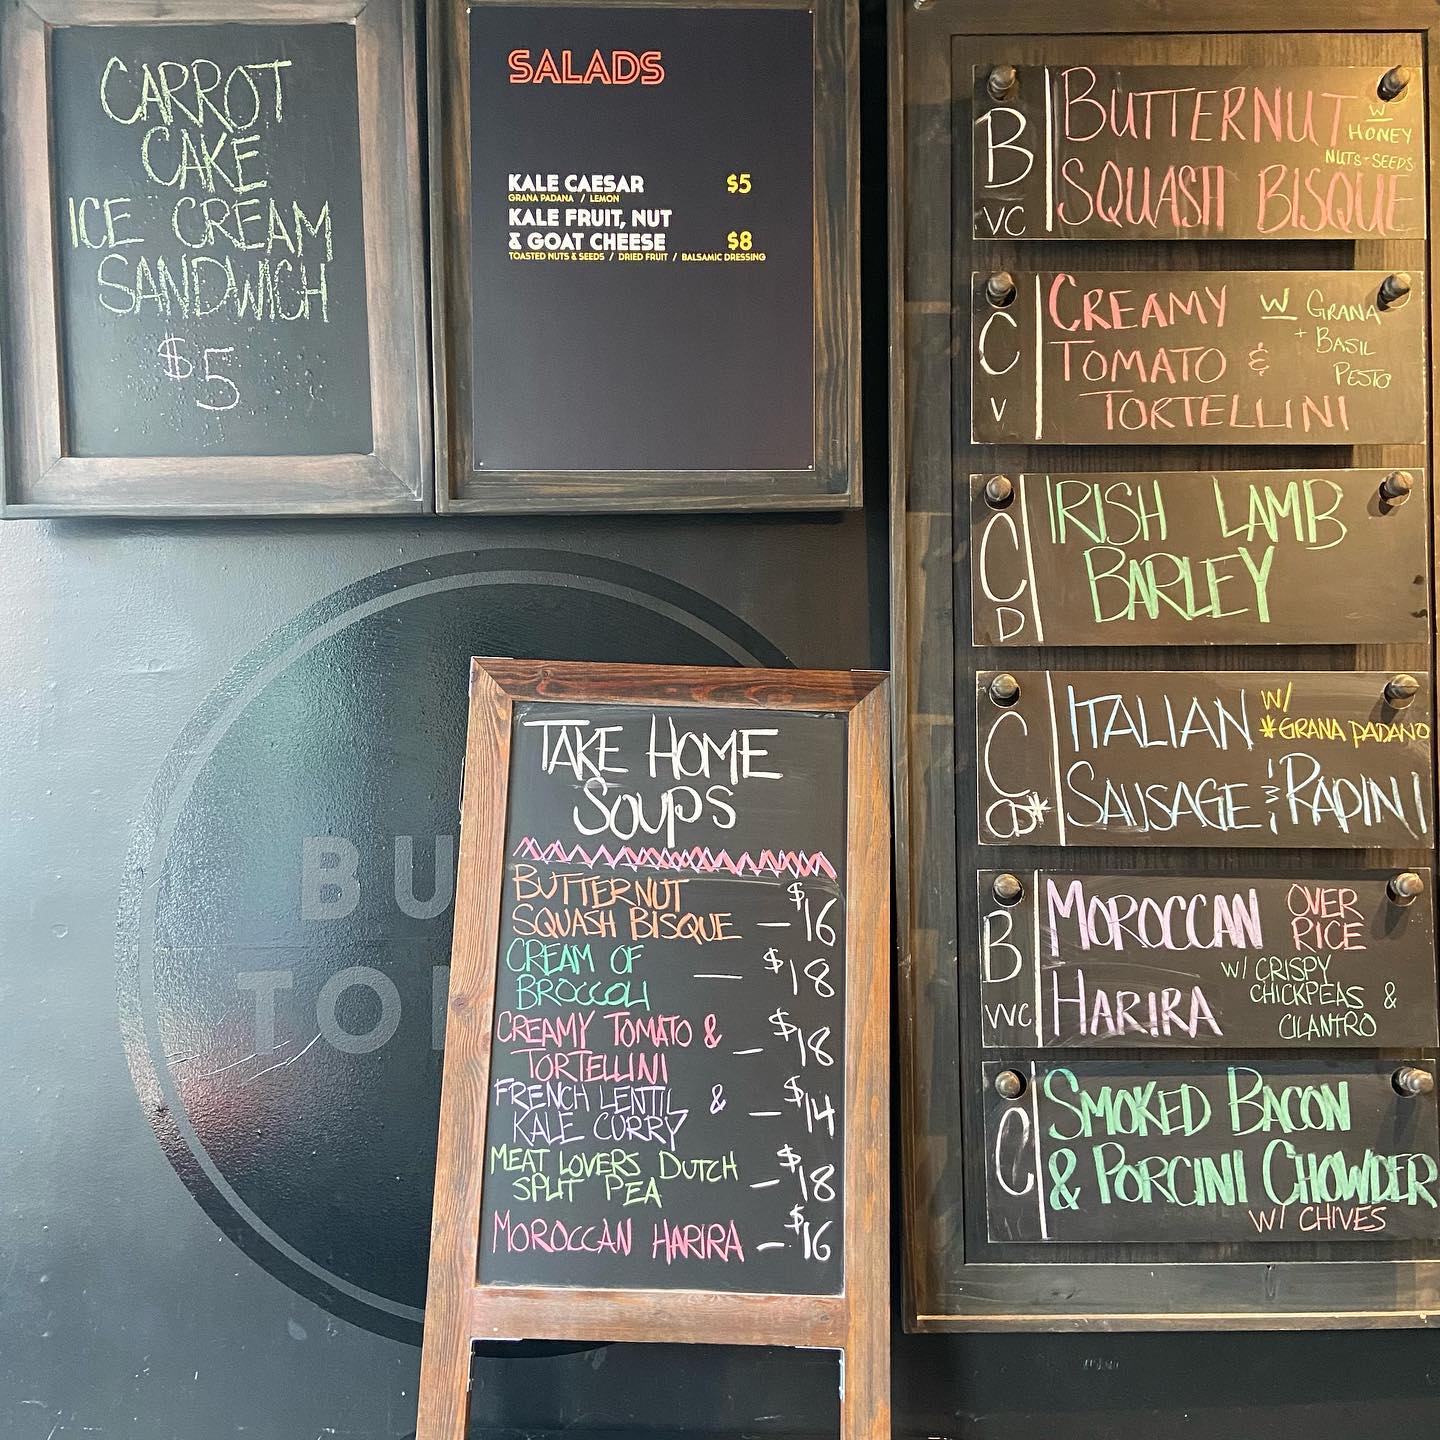 CARROT
CAKE
ICE CREAM
SANDWICH
$5
SALADS
KALE CAESAR $5
GRANA PADANA / LEMON
KALE FRUIT, NUT
& GOAT CHEESE $8
TOASTED NUTS & SEEDS / DRIED FRUIT / BALSAMIC DRESSING
B
VC
BUTTERNUT
SQUASH BISQUE
W
HONEY
NUTS-SEEDS
C
V
CREAMY
TOMATO &
TORTELLINI
W GRANA
+ BASIL
PESTO
C
D
IRISH LAMB
BARLEY
C
CD*
ITALIAN
SAUSAGE & RAPINI
W/
*GRANA PADANO
B
VVC
MOROCCAN
HARIRA
OVER
RICE
W/ CRISPY
CHICKPEAS &
CILANTRO
C
SMOKED BACON
& PORCINI CHOWDER
W/ CHIVES
TAKE HOME
SOUPS
BUTTERNUT
SQUASH BISQUE – $16
CREAM OF
BROCCOLI — $18
CREAMY TOMATO &
TORTELLINI – $18
FRENCH LENTIL &
KALE CURRY – $14
MEAT LOVERS DUTCH
SPLIT PEA – $18
MOROCCAN HARIRA – $16
BU
TO